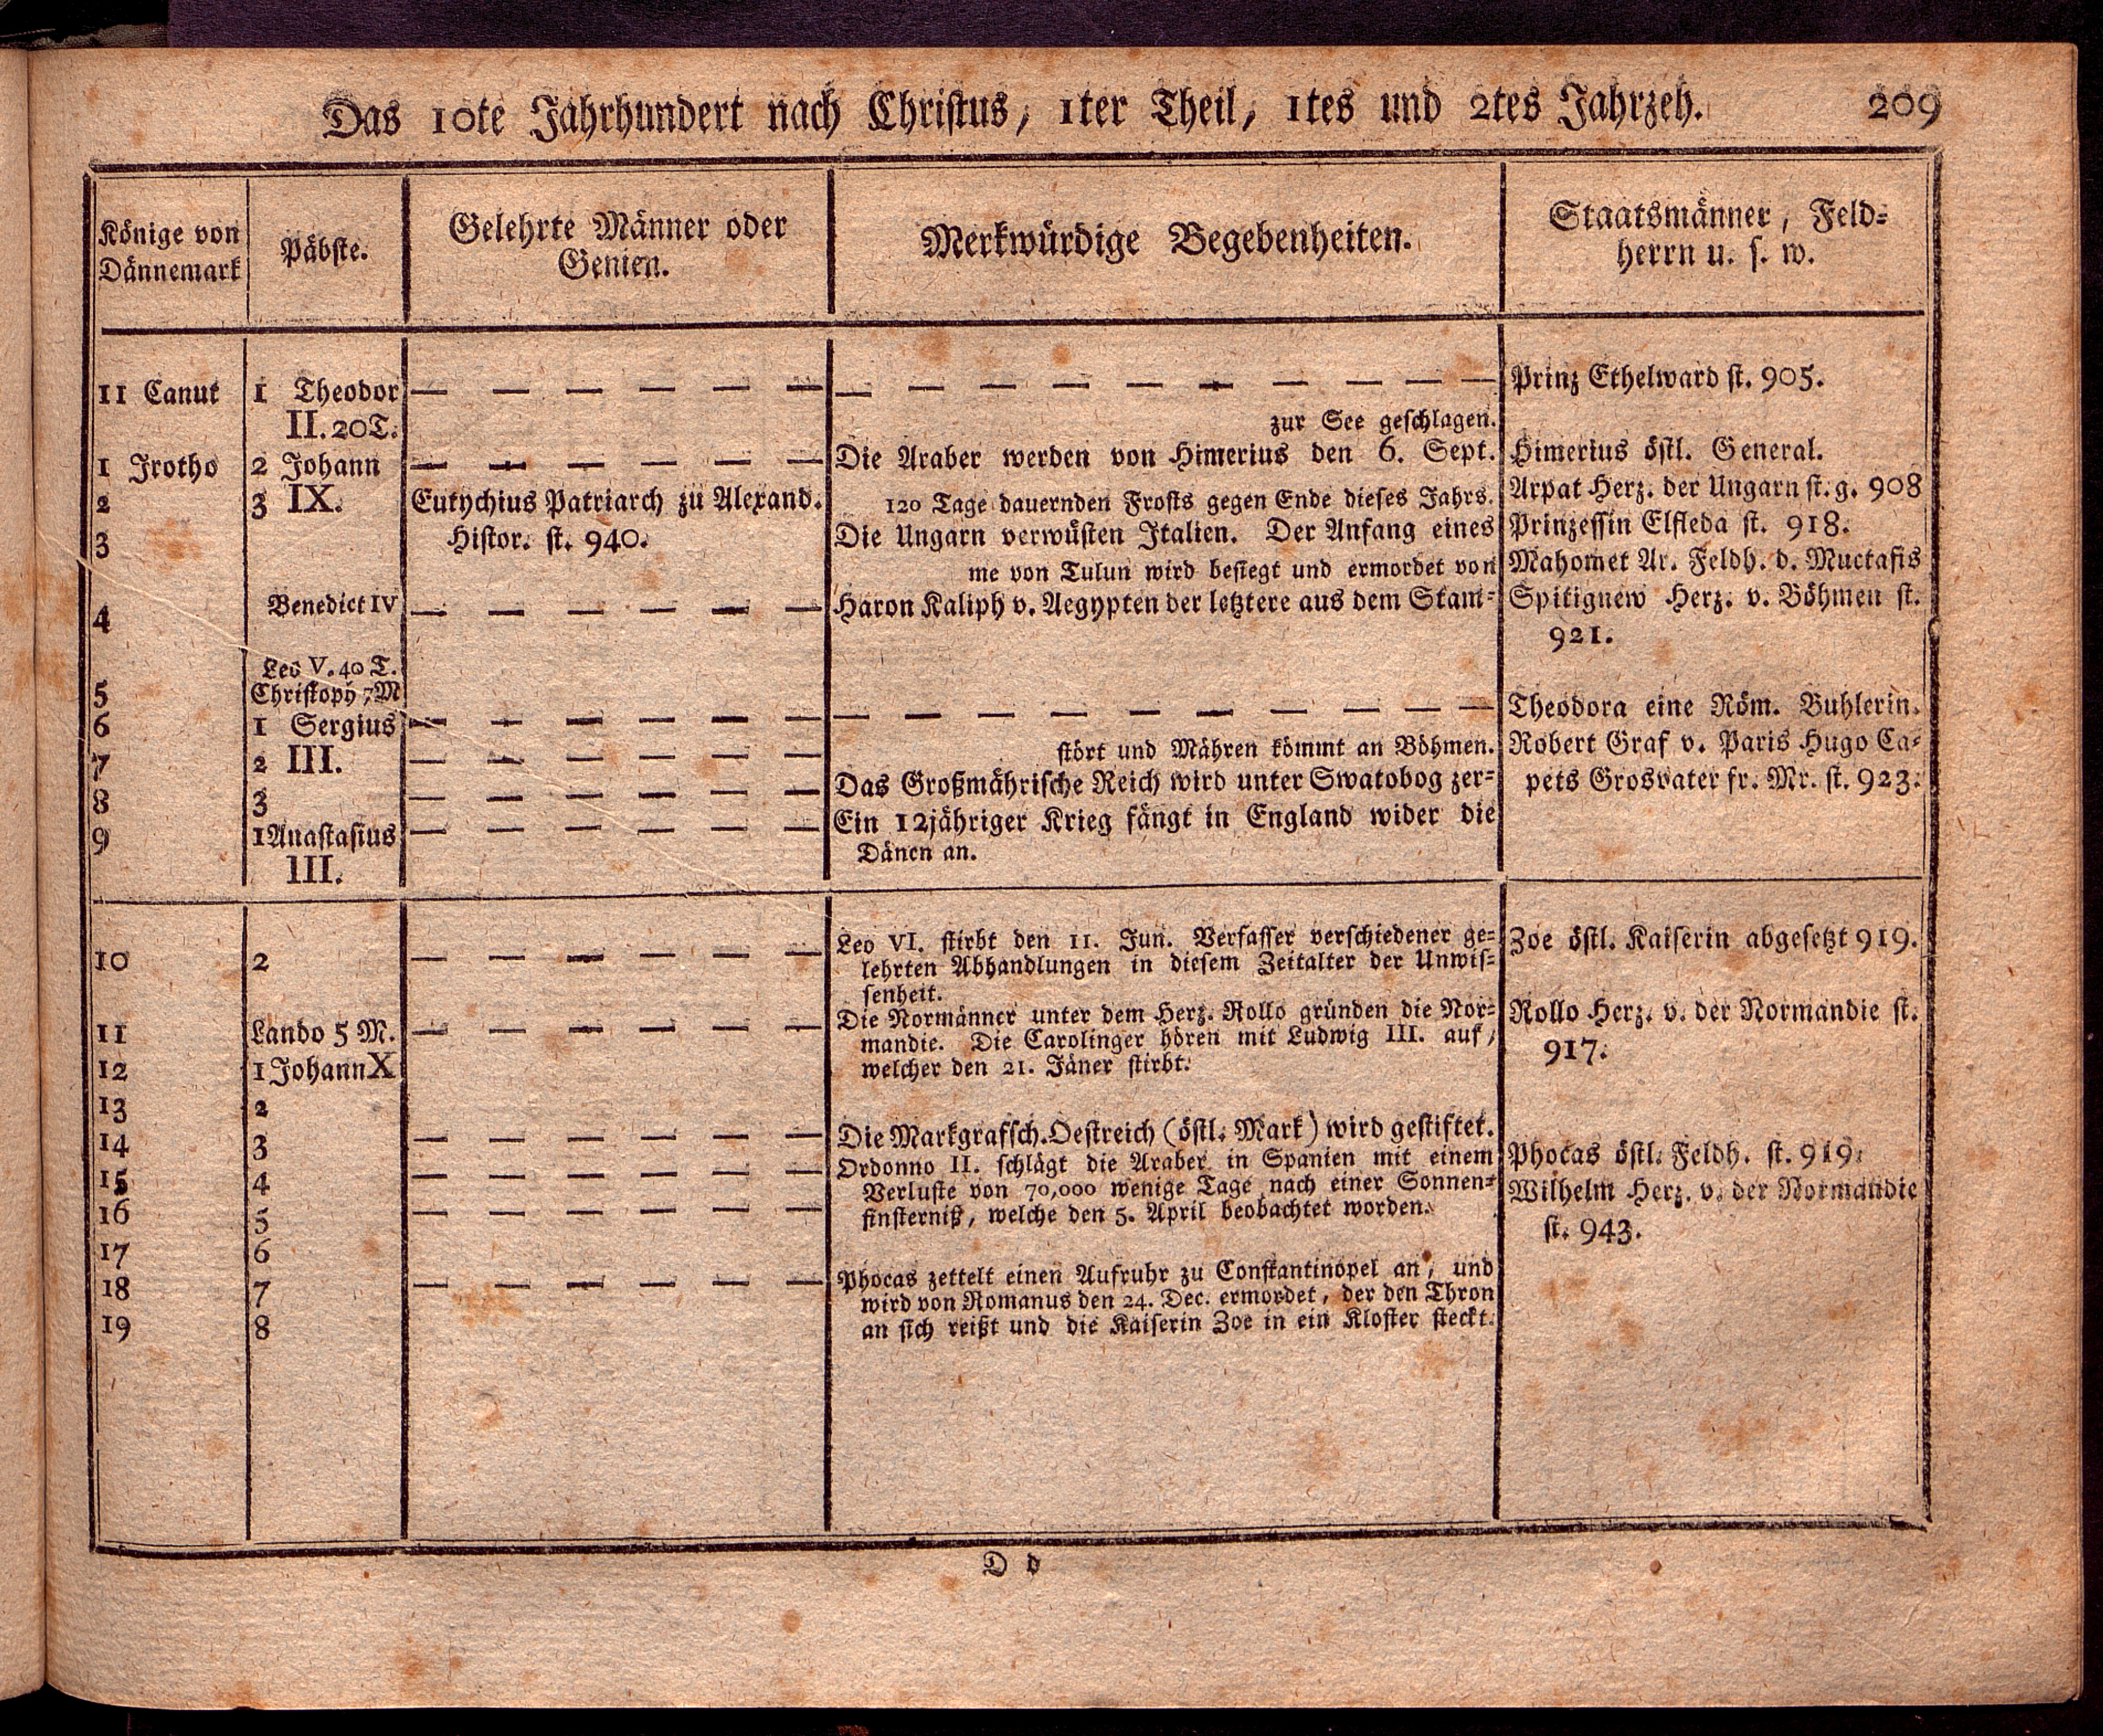 Das 10te Jahrhundert nach Christus, 1ter Theil, 1tes und 2tes Jahrzeh. 209
Könige von
Dännemark
Päbste.
Gelehrte Männer oder
Genien.
Merkwürdige Begebenheiten.
Staatsmänner, Feld-
herrn u. s. w.
11 Canut
1 Jrotho
2
3
4
5
6
7
8
9
1 Theodor
II. 20T.
2 Johann
3 IX.
Benedict IV
Leo V. 40 T.
Christoph 7M
1 Sergius
2 III.
3
1Anastasius
III.
— — — — — —
— — — — — —
Eutychius Patriarch zu Alexand.
Histor. st. 940.
— — — — — —
— — — — — —
— — — — — —
— — — — — —
— — — — — —
— — — — — — — — —
zur See geschlagen.
Die Araber werden von Himerius den 6. Sept.
120 Tage dauernden Frosts gegen Ende dieses Jahrs.
Die Ungarn verwüsten Italien. Der Anfang eines
me von Tulun wird besiegt und ermordet von
Haron Kaliph v. Aegypten der letztere aus dem Stam-
— — — — — — — — —
stört und Mähren kömmt an Böhmen.
Das Großmährische Reich wird unter Swatobog zer-
Ein 12jähriger Krieg fängt in England wider die
Dänen an.
Prinz Ethelward st. 905.
Himerius östl. General.
Arpat Herz. der Ungarn st. g. 908
Prinzessin Elfleda st. 918.
Mahomet Ar. Feldh. d. Muctafis
Spitignew Herz. v. Böhmen st.
921.
Theodora eine Röm. Buhlerin.
Robert Graf v. Paris Hugo Ca-
pets Grosvater fr. Mr. st. 923.
10
11
12
13
14
15
16
17
18
19
2
Lando 5 M.
1 Johann X
2
3
4
5
6
7
8
— — — — — —
— — — — — —
— — — — — —
— — — — — —
— — — — — —
— — — — — —
Leo VI. stirbt den 11. Jun. Verfasser verschiedener ge-
lehrten Abhandlungen in diesem Zeitalter der Unwis-
senheit.
Die Normänner unter dem Herz. Rollo gründen die Nor-
mandie. Die Carolinger hören mit Ludwig III. auf,
welcher den 21. Jäner stirbt.
Die Markgrafsch. Oestreich (östl. Mark) wird gestiftet.
Ordonno II. schlägt die Araber in Spanien mit einem
Verluste von 70,000 wenige Tage nach einer Sonnen-
finsterniß, welche den 5. April beobachtet worden.
Phocas zettelt einen Aufruhr zu Constantinopel an, und
wird von Romanus den 24. Dec. ermordet, der den Thron
an sich reißt und die Kaiserin Zoe in ein Kloster steckt.
Zoe östl. Kaiserin abgesetzt 919.
Rollo Herz. v. der Normandie st.
917.
Phocas östl. Feldh. st. 919.
Wilhelm Herz. v. der Normandie
st. 943.
D d